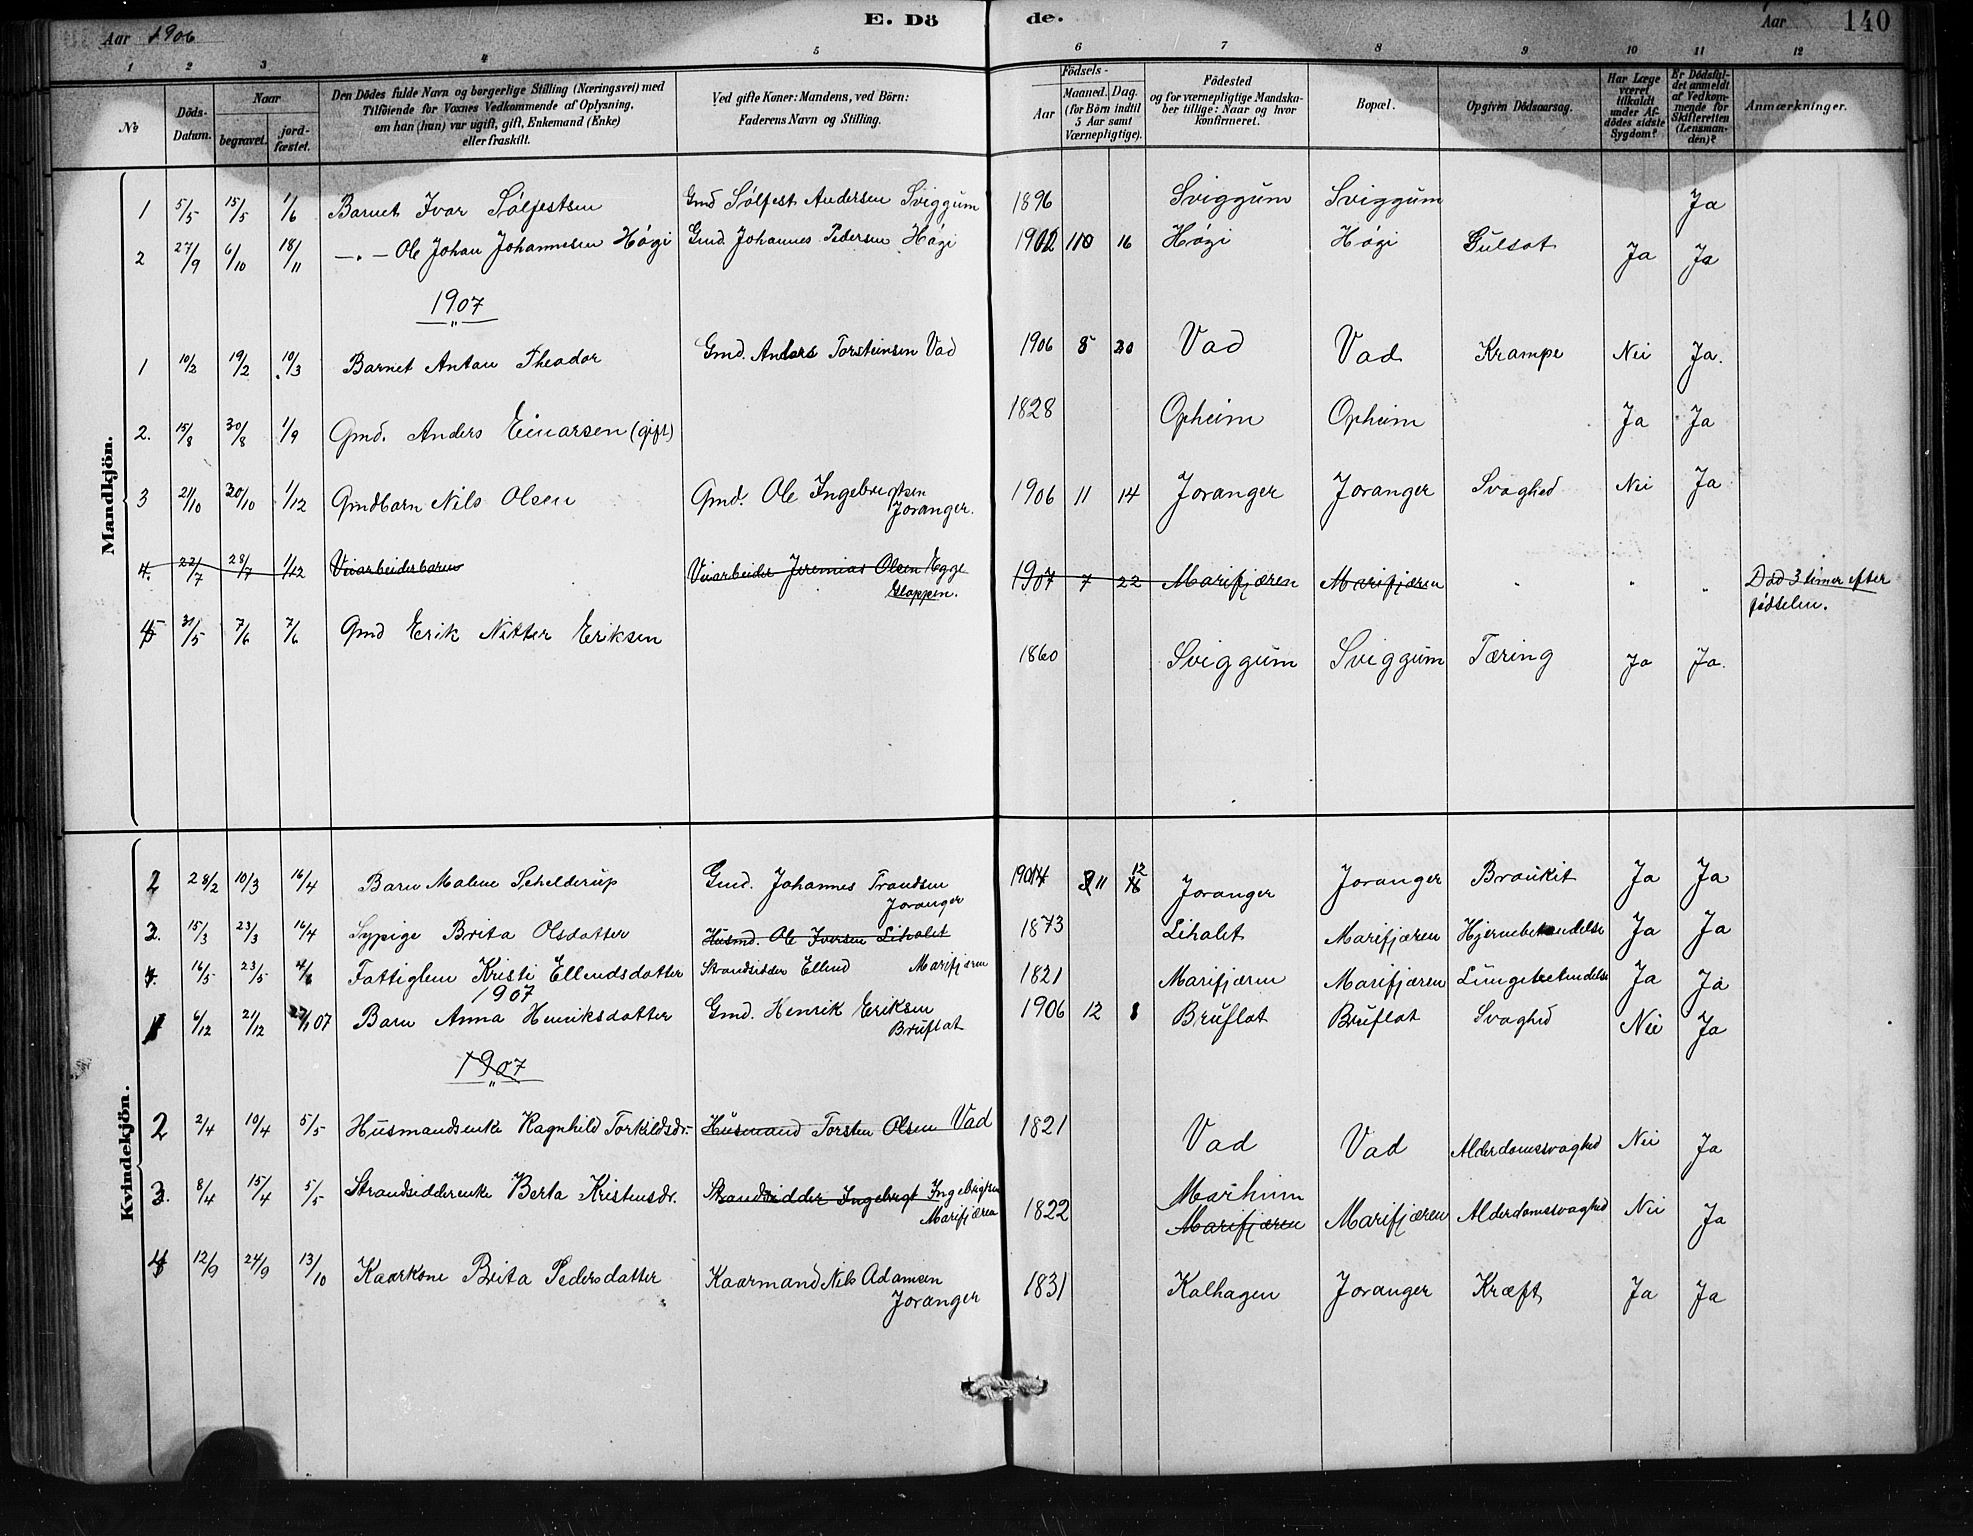 Aar 1906 E. Dö de. Aar 140
1 2 3 4 5 6 7 8 9 10 11 12
No
Döds-Datum.
Naar
begravet. jordfæstet.
Den Dödes fulde Navn og borgerlige Stilling (Næringsvei) med
Tilföiende for Voxnes Vedkommende af Oplysning,
om han (hun) var ugift, gift, Enkemand (Enke)
eller fraskilt.
Ved gifte Koner: Mandens, ved Börn:
Faderens Navn og Stilling.
Födsels-
Aar Maaned. Dag.
(for Börn indtil
5 Aar samt
Værnepligtige).
Födested
og for værnepligtige Mandska-
ber tillige: Naar og hvor
konfirmeret.
Bopæl.
Opgiven Dödsaarsag.
Har Læge
været
tilkaldt
under Af-
dödes sidste
Sygdom?
Er Dödsfal-
det anmeldt
af Vedkom-
mende for
Skifteretten
(Lensman-
den)?
Anmærkninger.
Mandkjön.
1 5/5 15/5 1/6 Barnet Ivar Sølfestsen Gmd Sølfest Andersen Sviggum 1896 Sviggum Sviggum Ja
2 27/9 6/10 18/11 —"— Ole Johan Johannesen Høgi Gmd. Johannes Pedersen Høgi 1902 110 16 Høgi Høgi Gulsot Ja Ja
1907
1 10/2 19/2 10/3 Barnet Antan Theodor Gmd. Anders Torsteinsen Vad 1906 8 20 Vad Vad Krampe Nei Ja.
2. 15/8 30/8 1/9 Gmd. Anders Einarsen (gift) 1828 Opheim Opheim Ja Ja
3 21/10 30/10 1/12 Gmdbarn Nils Olsen Gmd. Ole Ingebrigtsen
Joranger. 1906 11 14 Joranger Joranger Svaghed Nei Ja
4. 22/7 28/7 1/12 Veiarbeiderbarn Veiarbeider Jeremias Olsen Egge
Gloppen. 1907 7 22 Marifjæren Marifjæren " " " Død 3 timer efter
fødselen.
5 31/5 7/6 7/6 Gmd Erik Nitter Eriksen 1860 Sviggum Sviggum Tæring Ja Ja.
Kvindekjön.
2 28/2 10/3 16/4 Barn Malene Schelderup Gmd. Johannes Trondsen
Joranger 1904 11 12 Joranger Joranger Bronkit Ja Ja
3. 15/3 23/3 16/4 Sypige Brita Olsdatter Husmd. Ole Iversen Lihalet 1873 Lihalet Marifjæren Hjernebetændelse Ja Ja
4. 16/5 23/5 4/6 Fattiglem Kristi Ellendsdatter Strandsidder Ellend Marifjæren 1821 Marifjæren Marifjæren Lungebetændelse Ja Ja
1907
1 6/12 21/12 27/1 07 Barn Anna Henriksdatter Gmd. Henrik Eriksen
Bruflat 1906 12 1 Bruflat Bruflat Svaghed Nei Ja
1907
2 2/4 10/4 5/5 Husmandsenke Ragnhild Torkildsdr. Husmand Torsten Olsen Vad 1821 Vad Vad Alderdomssvaghed Nei Ja
3. 8/4 15/4 5/5 Strandsidderenke Berta Kristensdr. Strandsidder Ingebrigt Ingebrigtsen
Marifjæren 1822 Marheim
Marifjæren Marifjæren Alderdomssvaghed Nei Ja
4 12/9 24/9 13/10 Kaarkone Brita Pedersdatter Kaarmand Nils Adamsen
Joranger 1831 Kalhagen Joranger Kræft Ja Ja